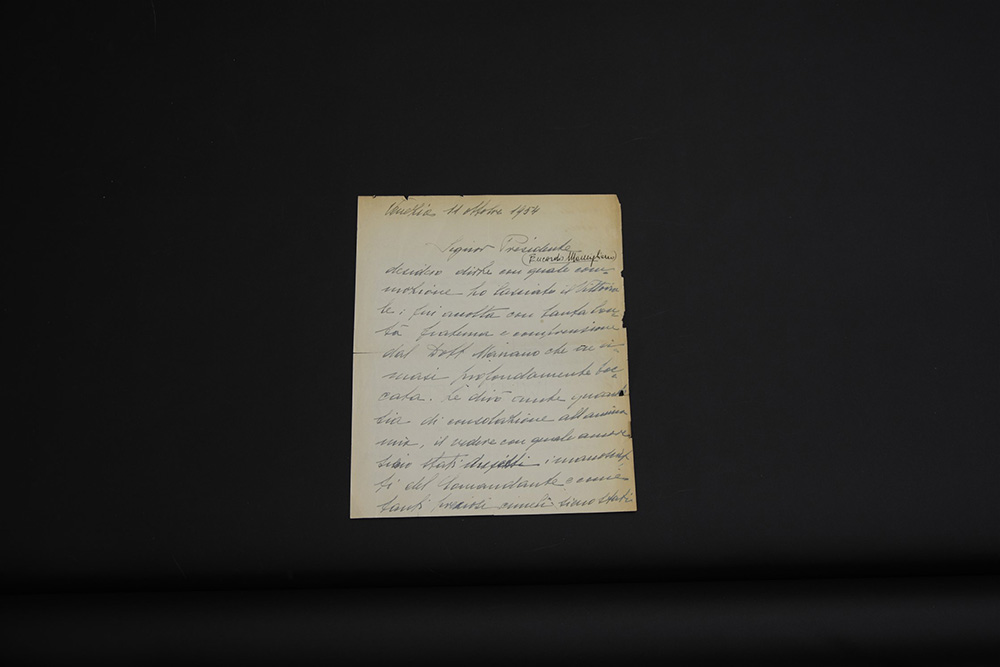 Venezia 11 ottobre 1954
Signor Presidente
(Eucardio Momigliano)
desidero dirle con quale com-
mozione ho lasciato il Vittoria
le; fui accolta con tanta bon-
tà fraterna e comprensione
dal Dott Mariano che ne ri-
masi profondamente toc-
cata. Le dirò anche quanto
sia di consolazione all'anima
mia, il vedere con quale amore
siano stati i manoscrit
ti del Comandante e come
tanti preziosi cimeli siano stati